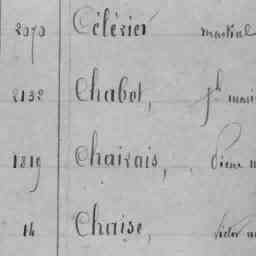 2070 Célérier Martial
2132 Chabot, Jh mari
1819 Chairais, Pierre
14 Chaise, Victor